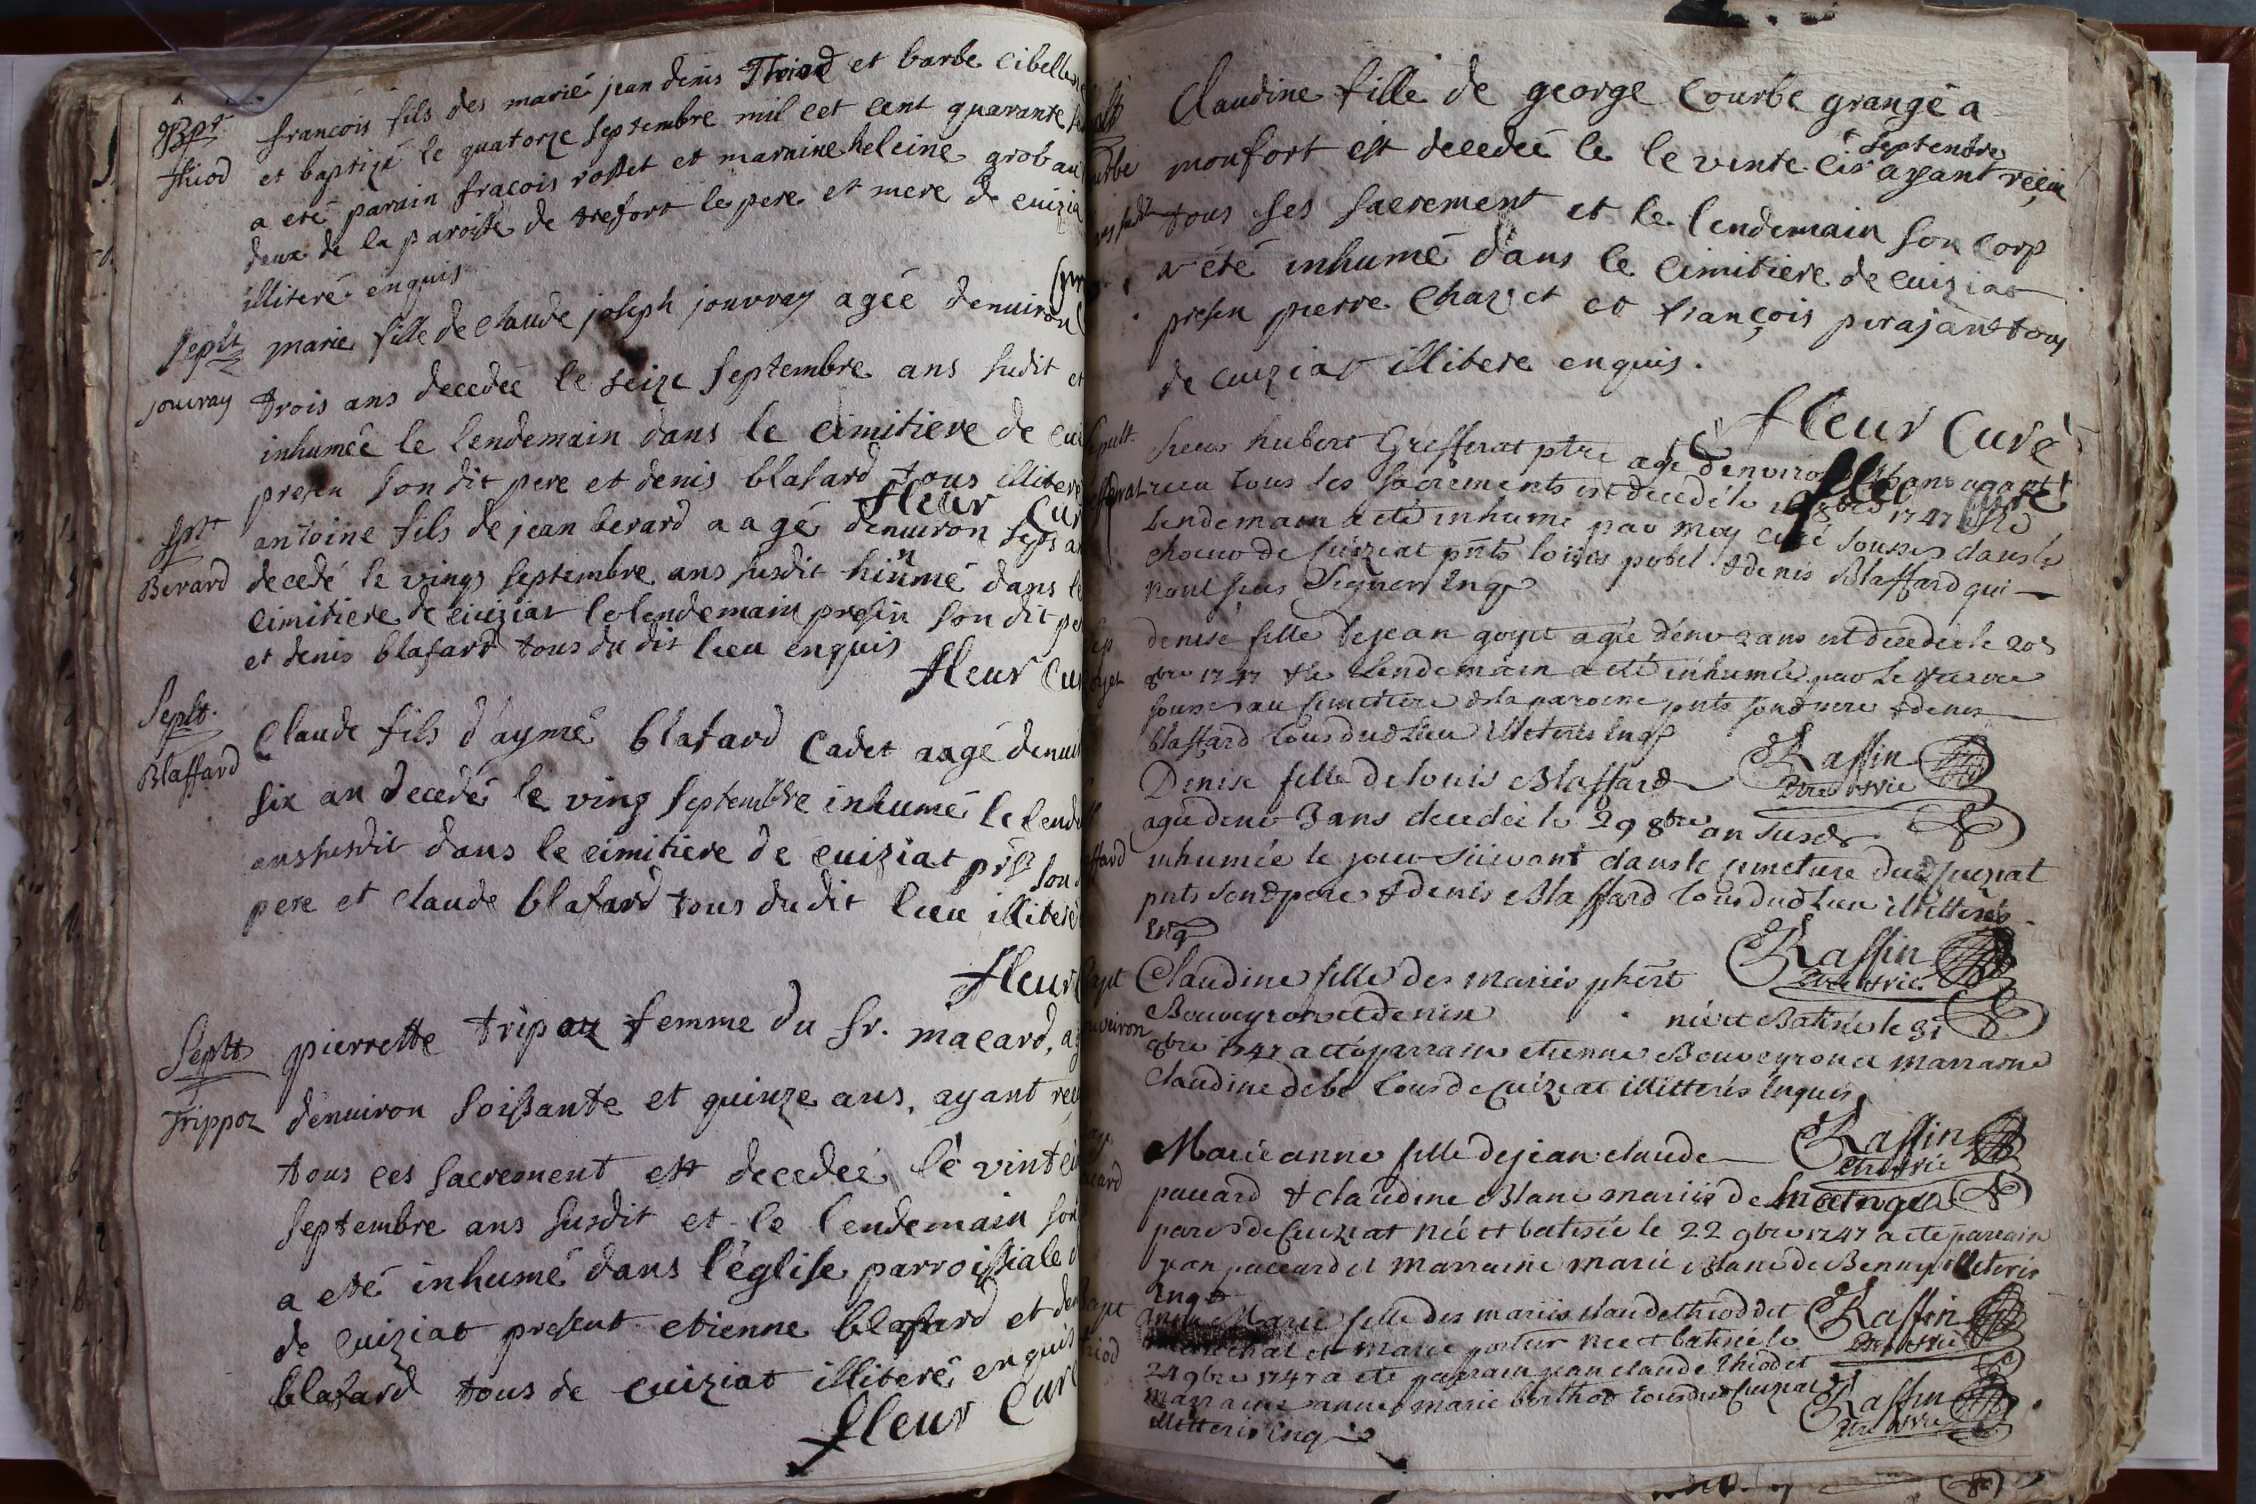 Bpt.
thiod
françois fils des marié jean denis Thiod et barbe cibelle
et baptizé le quatorze septembre mil cet cent quarante
a eté parain fracois rosset et maraine heleine grob
deux de la paroisse de trefort le pere et mere de cuizia
illiteré enquis
Seplt
jouvray
marie fille de claude joseph jouvray agée denuiron
trois ans decedée le seize septembre ans sudit et
inhumée le lendemain dans le cimitiere de cui
presen son dit pere et denis blafard tous illiteré
fleur Cur
Seplt
Berard
antoine fils de jean berard aagé denuiron sept
decedé le vingt septembre ans susdit hinumé dans le
cimitiere de cuiziat le lendemain presen son dit pe
et denis blafard tous du dit lieu enquis
fleur Cu
Seplt.
Blaffard
Claude fils d'aymé blafard cadet aagé denui
six an decedé le ving septembre inhumé le lend
anssusdit dans le cimitiere de cuiziat son
pere et claude blafard tous du dit lieu illiteré
fleur
Seplt
Trippoz
pierrette tripoz femme du sr. macard,
denuiron soissante et quinze ans, ayant reçu
tous ces sacrement est decedeé le vint
septembre ans susdit et le lendemain son
a eté inhumé dans l'église parroissiale d
de cuiziat present etienne blafard et den
blafard tous de cuiziat illiteré enquis
fleur Curé
Claudine fille de george Courbe grangé a
monfort est decedeé le le vinte septembre ayant reçu
tous ses sacrement et le lendemain son corp
a été inhumé dans le cimitiere de cuiziat
presen pierre Chazet et françois perajant tous
de cuiziat illitere enquis.
fleur Curé
Sieur hubert Grefferat ptre agé denviron ans ayant
recu tous ses sacrements est decedé le 1747 & le
Lendemain a eté inhumé par moy curé sousse dans le
choeur de Cuiziat pnts pobel & denis Blaffard qui
nont seus signer Enq
denise fille de jean goyet agée denv 2 ans est decedée le 20
8bre 1747 & le Lendemain a eté inhumée par le vicaire
sousse au cimetiere de la paroisse pnts sond pere & denis
blaffard tous dud Lieu illiterés Enq
Raffin
Ptre & Vic
Denise fille de louis Blaffard
agée denv 3 ans decedée le 29 8bre an susd
inhumée le jour suivant dans le cimetiere dud Cuiziat
pnts sond pere & denis Blaffard tous dud Lieu illitterés
Enq
Raffin
Ptre & Vic
Claudine fille des mariés
Bouveyron et denise née et Batisée le 31
8bre 1747 a eté parrain etienne Bouveyron et marraine
Claudine debe tous de Cuiziat illitterés Enquis
Raffin
Ptre & Vic
Marie anne fille de jean claude
paccard & claudine Blanc mariés de
parois de Cuiziat née et batisée le 22 9bre 1747 a eté parrain
jean paccard et marraine marie Blanc de Benny illiteris
Enq
Raffin
Ptre & Vic
anne Marie fille des mariés claude thiod dit
marechal et marie née et batisée le
24 9bre 1747 a eté parrain jean claude thiod et
marraine anne marie berthod tous dud Cuiziat
illitteris Enq
Raffin
Ptre & Vic